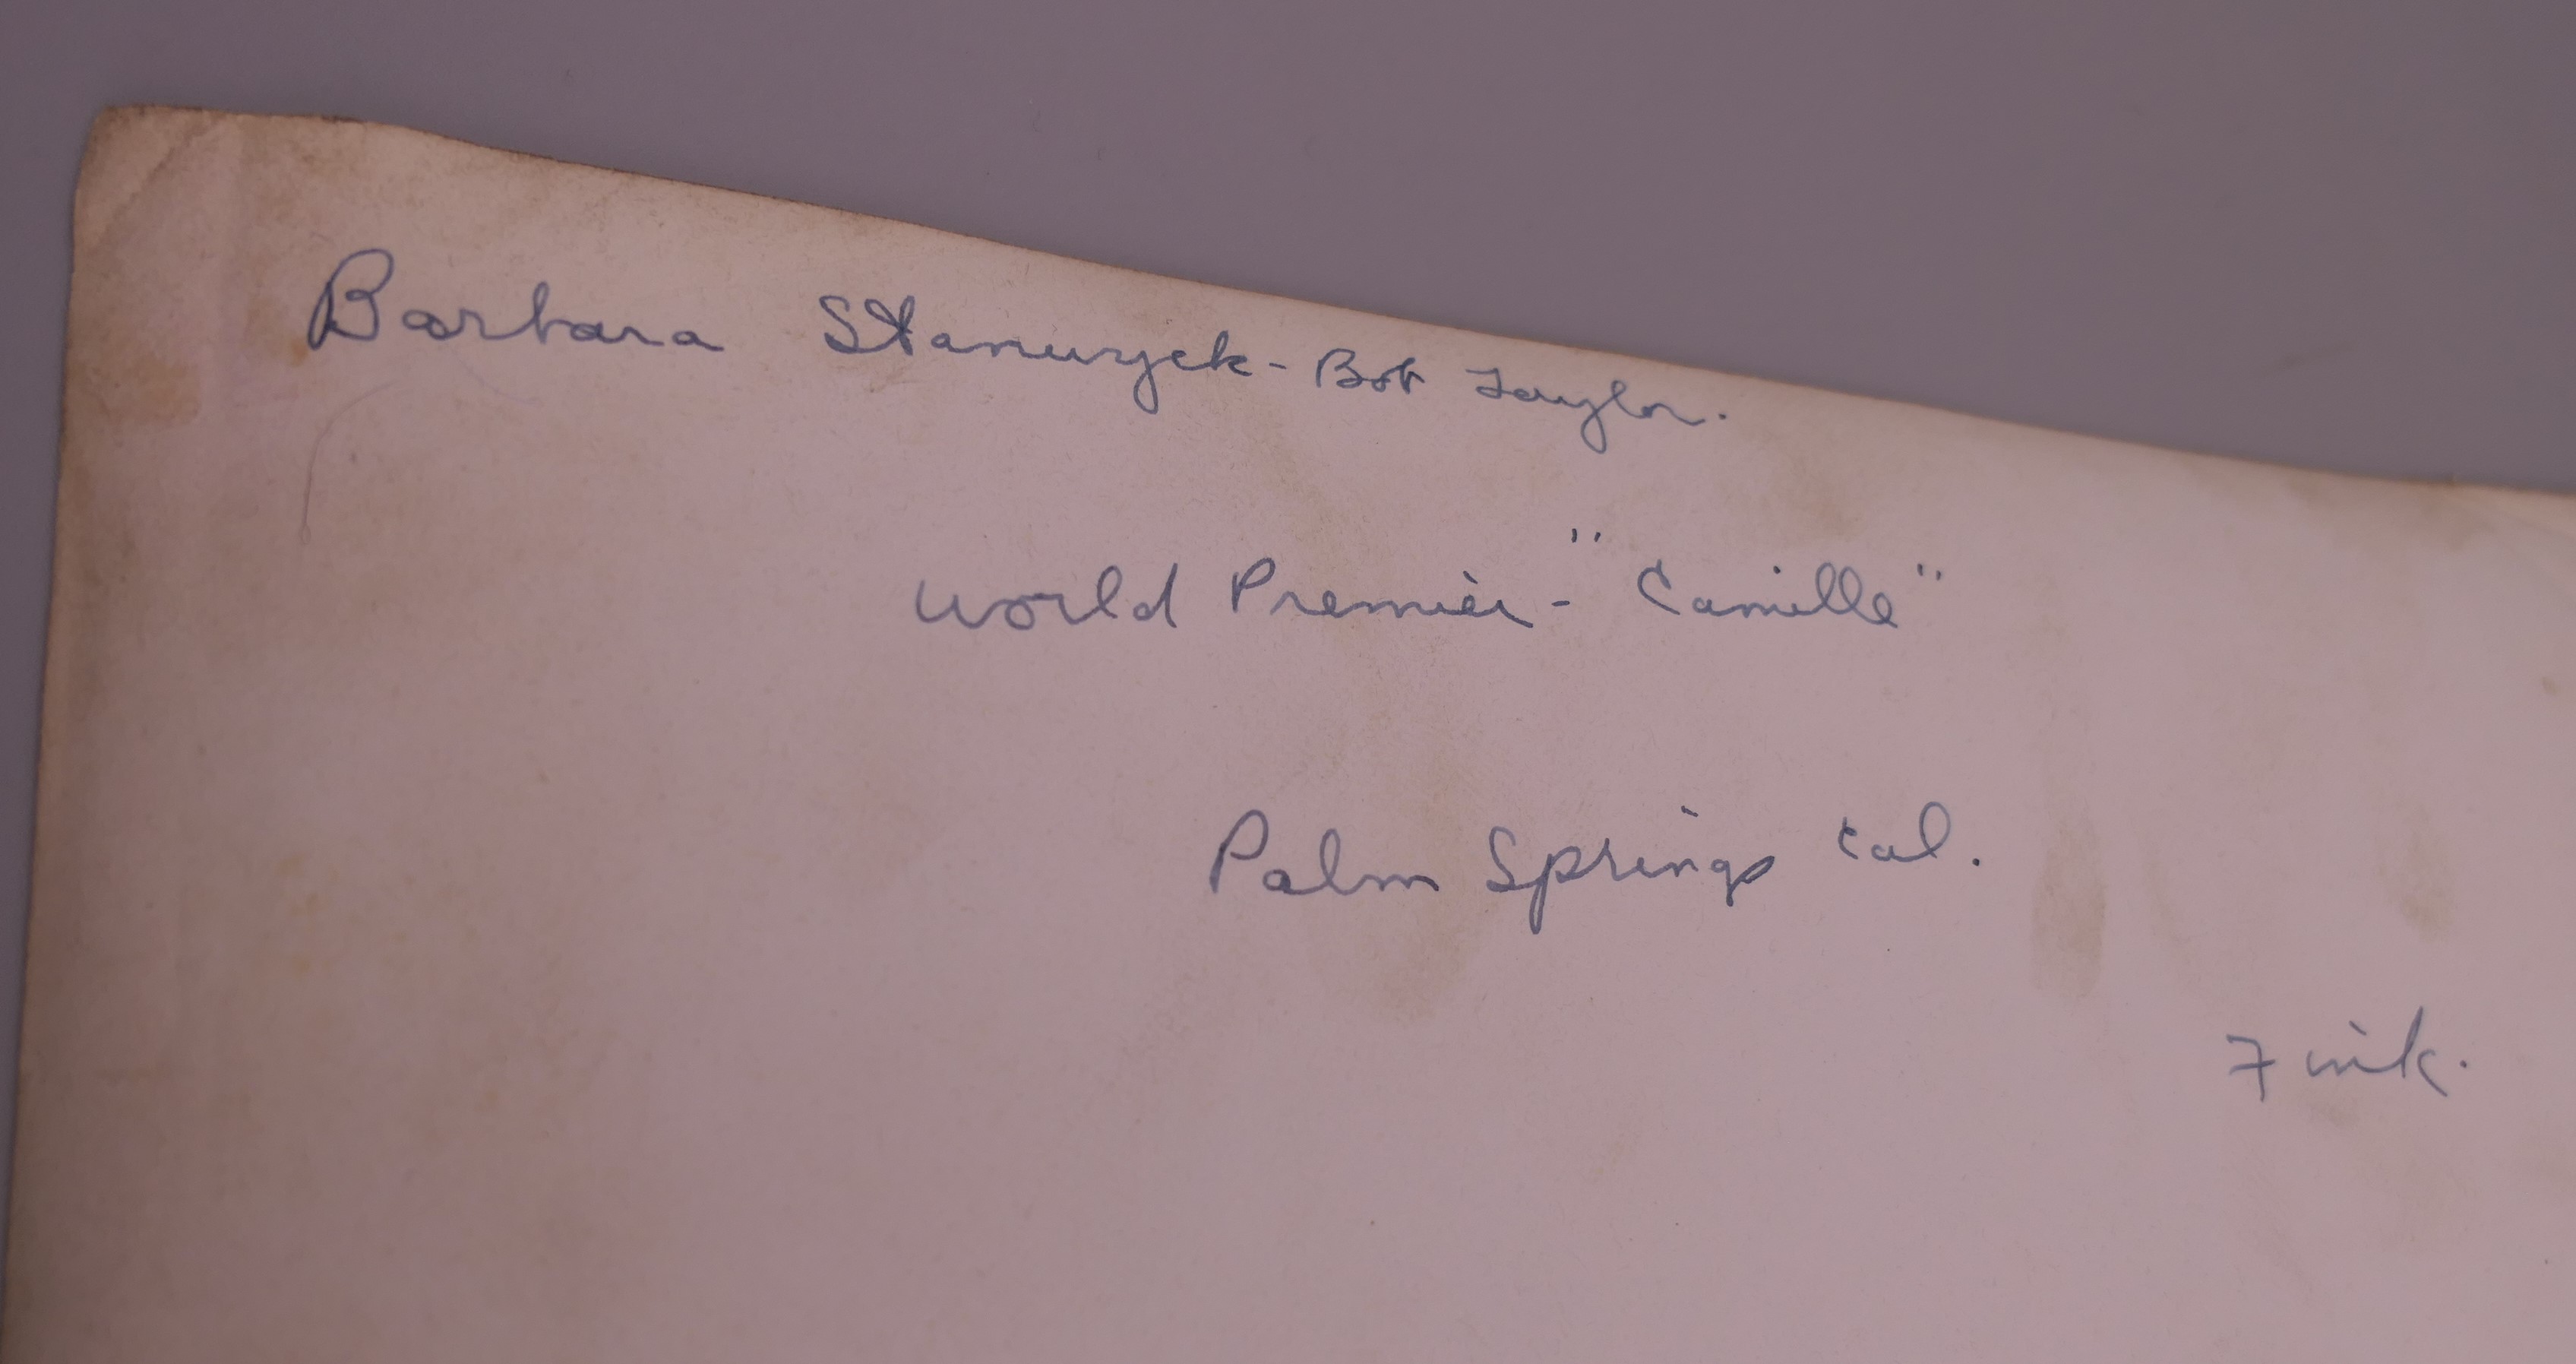 Barbara Stanwyck - Bob Taylor.
World Premier - "Camille"
Palm Springs Cal.
Fink.